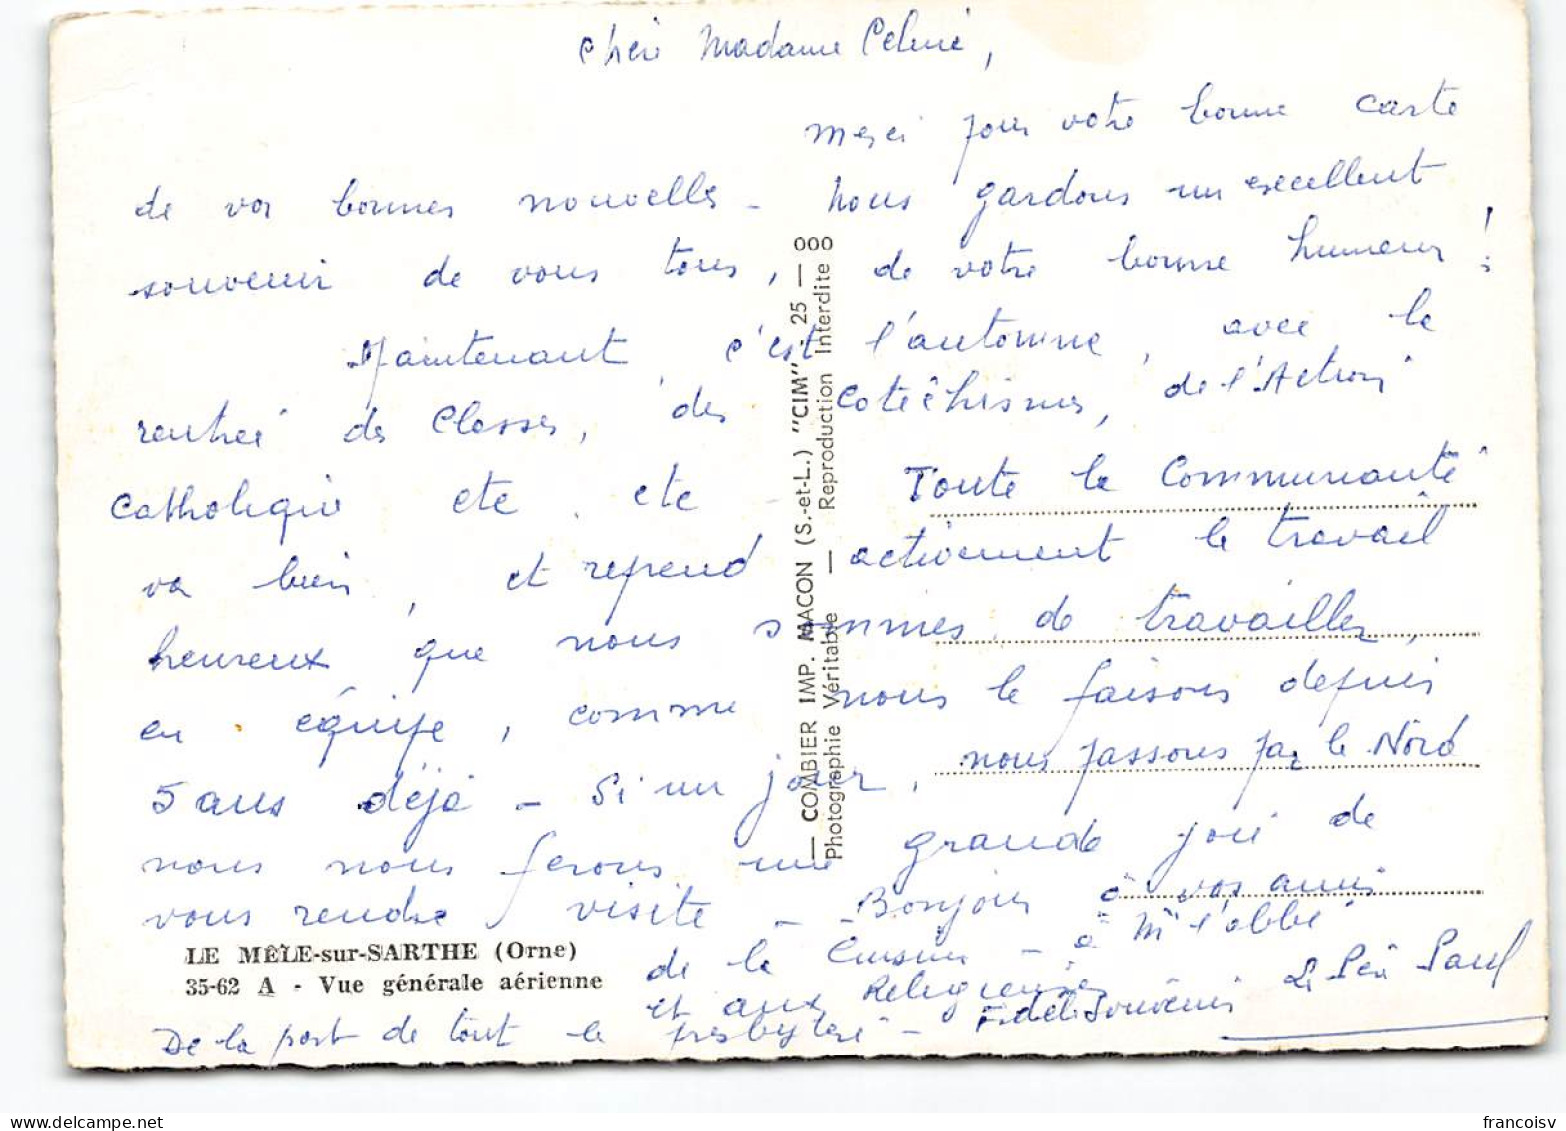 Chère Madame Celerié,
merci pour votre bonne carte
de vos bonnes nouvelles - Nous gardons un excellent
souvenir de vous tous, de votre bonne humeur !
Maintenant, c'est l'automne, avec la
rentrée des classes, des catéchismes, de l'Action
Catholique etc. etc - Toute la Communauté
va bien, et reprend activement le travail
heureux que nous sommes de travailler,
en équipe, comme nous le faisons depuis
5 ans déjà - Si un jour, nous passons par le Nord
nous nous ferons une grande joie de
vous rendre visite - Bonjour à vos amis
de la Cuisine - à Mr l'abbé
et aux Religieuses - Fidèle souvenir Le Père Paul
De la part de tout le presbytère -
LE MÊLE-sur-SARTHE (Orne)
35-62 A - Vue générale aérienne
— COMBIER IMP. MACON (S.-et-L.) "CIM" - 25 — 000
Photographie Véritable — Reproduction Interdite
francoisv